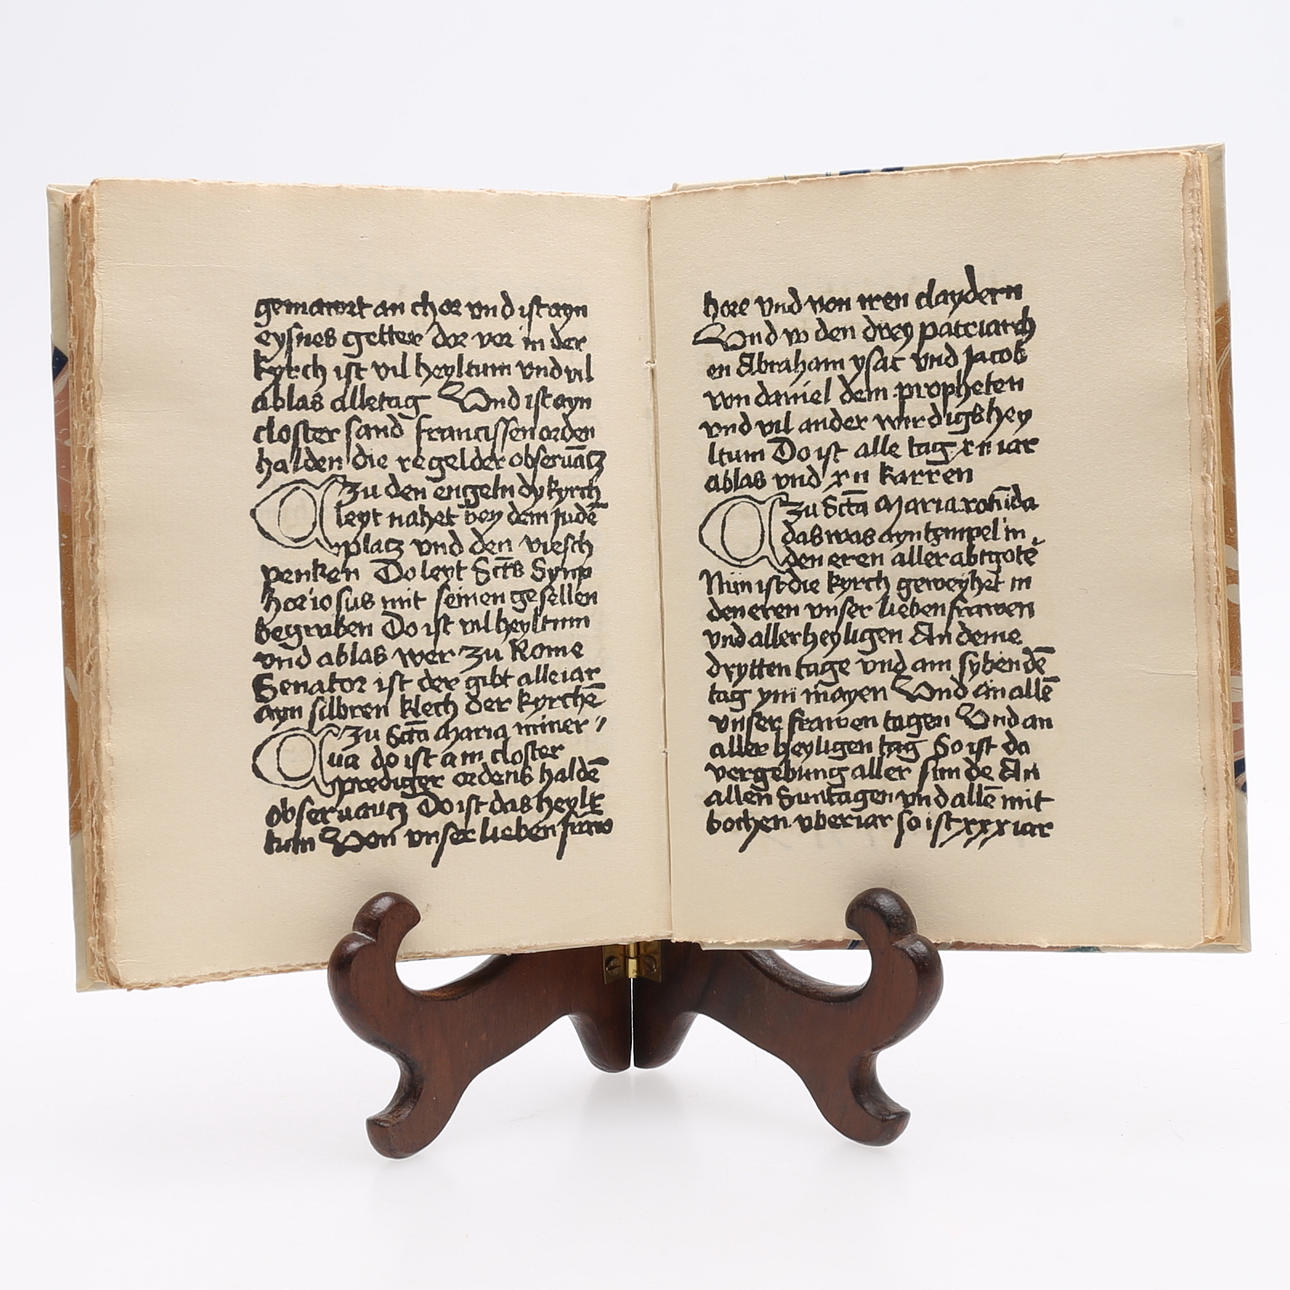 gemawrt an chor vnd ist ayn
eysnes getter dor vor in der
kyrch ist vil heyltum vnd vil
ablas alletag Vnd ist ayn
closter sand francissen orden
halden die regel der obseruãtz
Zu den engeln dy kyrch
leyt nahet bey dem Judẽ
platz vnd den viesch
penken Do leyt Sctẽ Symp
horiosus mit seinen gesellen
begraben Do ist vil heyltum
vnd ablas wer zu Rome
Senator ist der gibt alle iar
ayn silbren klech der kyrchẽ
Zu Sctã Maria miner//
ua do ist am closter
prediger ordens haldẽ
obseruautz Do ist das heylt
tum Von vnser lieben fraw
hore vnd von iren claydern
Vnd vo den drey patriarch
en Abraham ysac vnd Jacob
von daniel dem propheten
vnd vil ander wirdigs hey
ltum Do ist alle tag xii iar
ablas vnd xii karren
Zu Sctã Maria rotũda
das was ayn tempel in
den eren aller abtgotẽ
Nun ist die kyrch geweyhet in
den eren vnser lieben frawen
vnd aller heyligen An deme
drytten tage vnd am sybendẽ
tag ym mayen Vnd an allẽ
vnser frawen tagen Vnd an
aller heyligen tag So ist do
vergebung aller sunde An
allen Suntagen vnd allẽ mit
bochen vber iar so ist xxx iar